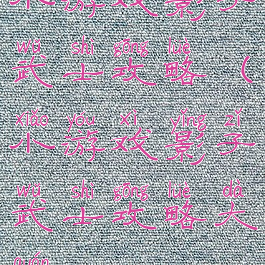 wǔ shì gōng lüè
武士攻略（
xiǎo yóu xì yǐng zǐ
小游戏影子
wǔ shì gōng lüè dà
武士攻略大